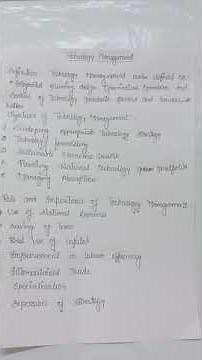 Technology Management
Definition Technology Management can be defined as
Integrated planning design Optimization Operation and
Control of Technology products process and Services
Objectives of Technology Management
Developing appropriate Technology Strategy
Technology forecasting
Sustainable Economic Growth
Planning National Technology portfolio
Managing Absorption
Role and Importance of Technology Management
Use of National Resources
Saving of time
Total use of capital
Improvement in labour efficiency
International Trade
Specialization
Expansion of